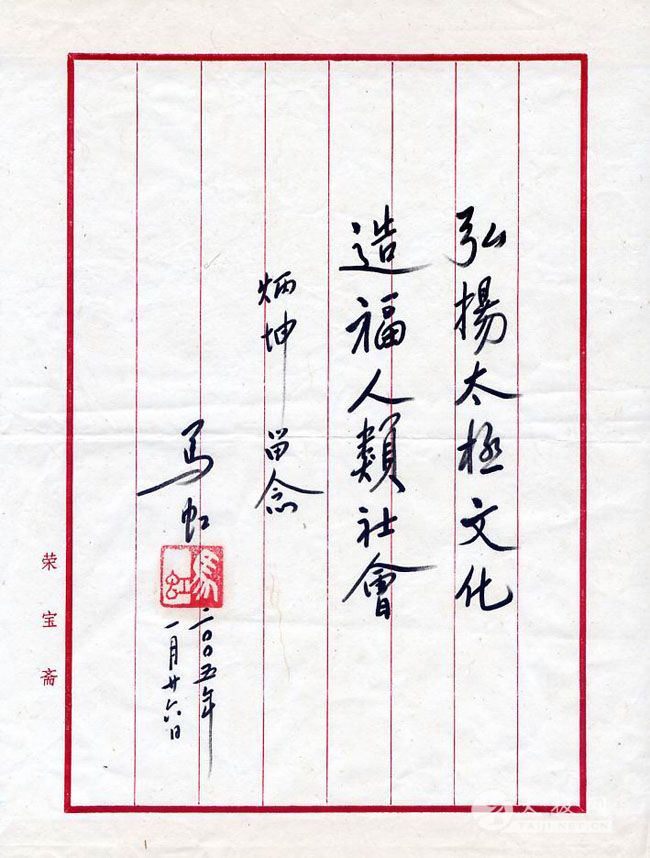 弘揚太極文化
造福人類社會
炳坤 留念
馬虹
馬虹
二〇〇五年
一月廿六日
荣宝斋
TAIJI.NET.CN